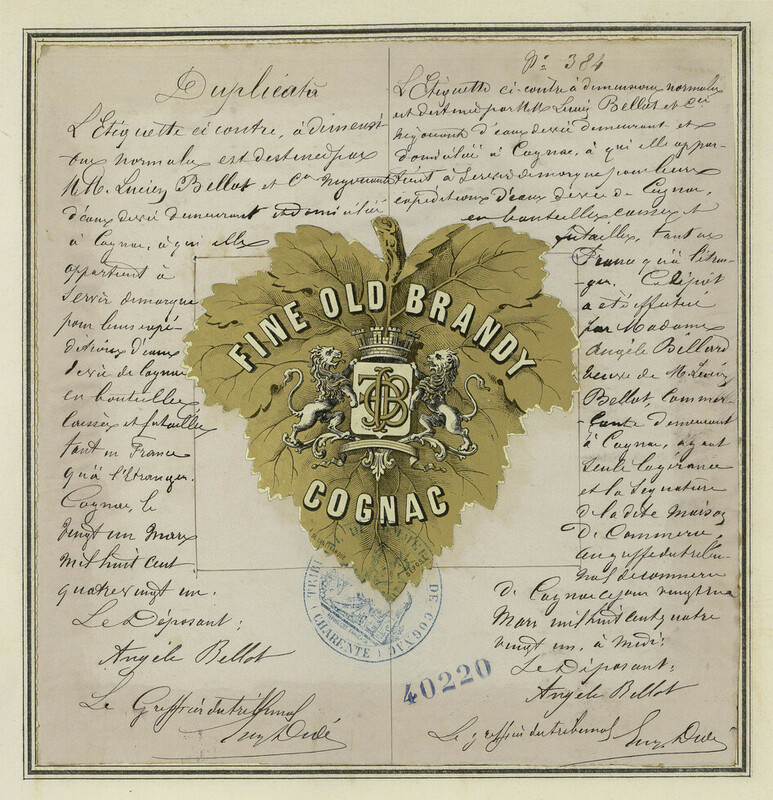 Duplicata
L'Etiquette ci contre, à dimensi-
ons normales est destinée par
MM. Lucien Bellot et Cie Negociants
d'eaux de vie demeurant et domiciliés
à Cognac, à qui elle
appartient à
servir de marque
pour leurs expé-
ditions d'eaux
de vie de Cognac
en bouteilles
caisses et futailles
tant en France
qu'à l'Etranger.
Cognac, le
vingt un Mars
mil huit cent
quatre vingt un.
Le Déposant:
Angèle Bellot
Le Greffier du tribunal
No 384
L'Etiquette ci-contre à dimensions normales
est destinée par MM. Lucien Bellot et Cie
négociants d'eaux de vie demeurant et
domiciliés à Cognac, à qui elle appar-
tient à servir de marque pour leurs
expéditions d'eaux de vie de Cognac,
en bouteilles caisses et
futailles, tant en
France qu'à l'étran-
ger. Ce dépôt
a été effectué
par Madame
Angèle Billard
veuve de M. Lucien
Bellot, Commer-
çante demeurant
à Cognac, ayant
seule la gérance
et la signature
de la dite Maison
de Commerce,
au greffe du tribu-
nal de commerce
de Cognac ce jour vingt un
Mars mil huit cent quatre
vingt un, à midi:
Le Déposant:
Angèle Bellot
Le greffier du tribunal
FINE OLD BRANDY
JCB
COGNAC
TRIBI
DE COGNAC
CHARENTE
40220